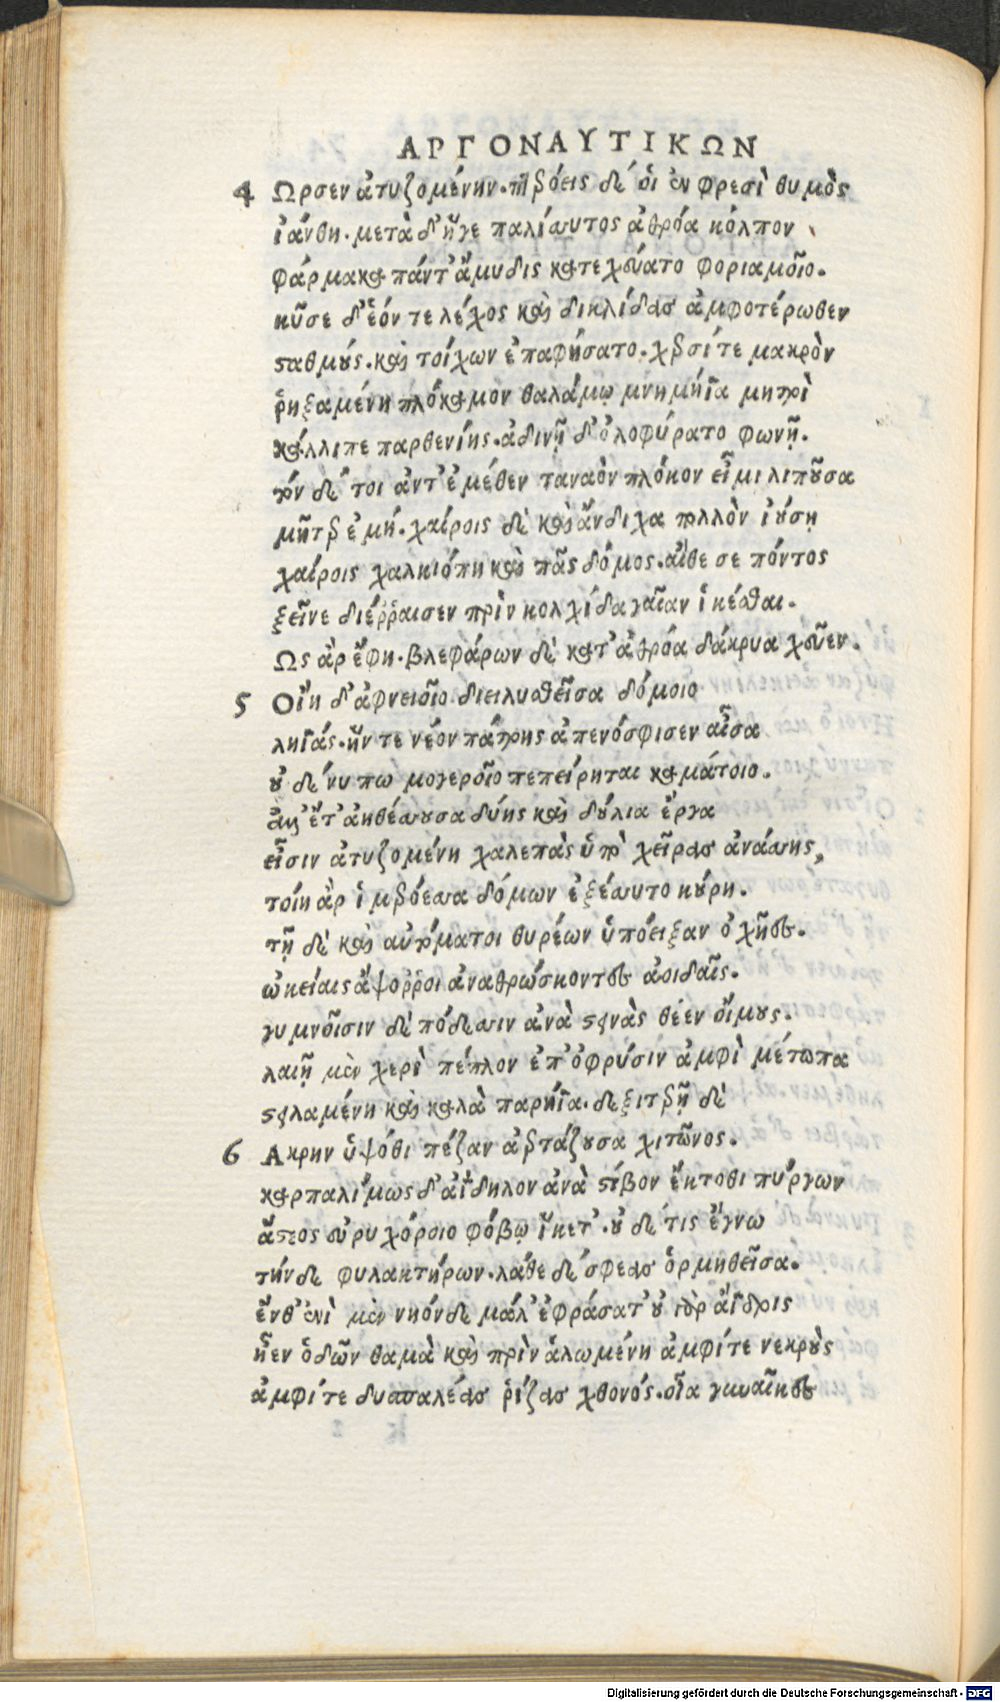 ΑΡΓΟΝΑΥΤΙΚΩΝ
4 Ωρσεν ἀτυζομένην. πτερόεις δέ οἱ ἐν φρεσὶ θυμὸς
ἰάνθη. μετὰ δ' ἥγε παλίσσυτος ἀθρόα κόλπον
φάρμακα πάντ' ἄμυδις κατεχεύατο φοριαμοῖο.
κῦσε δ' ἑόν τε λέχος καὶ δικλίδας ἀμφοτέρωθεν
σταθμούς. καὶ τοίχων ἐπαφήσατο. χερσί τε μακρὸν
ῥηξαμένη πλόκαμον θαλάμῳ μνημήϊα μητρὶ
κάλλιπε παρθενίης. ἀδινῇ δ' ὀλοφύρατο φωνῇ.
τόν δέ τοι ἀντ' ἐμέθεν ταναὸν πλόκον εἶμι λιποῦσα
μῆτερ ἐμή. χαίροις δὲ καὶ ἄνδιχα πολλὸν ἰούσῃ
χαίροις χαλκιόπη καὶ πᾶς δόμος. αἴθε σε πόντος
ξεῖνε διέῤῥαισεν πρὶν κολχίδα γαῖαν ἱκέσθαι.
Ως ἀρ ἔφη. βλεφάρων δὲ κατ' ἀθρόα δάκρυα χεῦεν.
5 Οἵη δ' ἀφνειοῖο διειλυσθεῖσα δόμοιο
ληϊάς. ἥν τε νέον πάτρης ἀπενόσφισεν αἶσα
οὐδέ νυ πω μογεροῖο πεπείρηται καμάτοιο.
ἀλλ' ἔτ' ἀηθέσσουσα δύης καὶ δούλια ἔργα
εἶσιν ἀτυζομένη χαλεπὰς ὑπὸ χεῖρας ἀνάσσης,
τοίη ἂρ ἱμερόεσσα δόμων ἐξέσσυτο κούρη.
τῇ δὲ καὶ αὐτόματοι θυρέων ὑπόειξαν ὀχῆες.
ὠκείαις ἄψοῤῥοι ἀναθρώσκοντες ἀοιδαῖς.
γυμνοῖσιν δὲ πόδεσσιν ἀνὰ στεινὰς θέεν οἴμους.
λαιῇ μὲν χερὶ πέπλον ἐπ' ὀφρύσιν ἀμφὶ μέτωπα
στειλαμένη καὶ καλὰ παρήϊα. δεξιτερῇ δὲ
6 Ακρην ὑψόθι πέζαν ἀερτάζουσα χιτῶνος.
καρπαλίμως δ' ἀΐδηλον ἀνὰ στίβον ἔκτοθι πύργων
ἄστεος εὐρυχόροιο φόβῳ ἵκετ'. οὐ δέ τις ἔγνω
τήνδε φυλακτήρων. λάθε δέ σφεας ὁρμηθεῖσα.
ἔνθ' ἐνὶ μὲν νηόνδε μάλ' ἐφράσατ' οὐ γὰρ ἄϊδρις
ἦεν ὁδῶν θαμὰ καὶ πρὶν ἀλωμένη ἀμφί τε νεκροὺς
ἀμφί τε δυσπαλέας ῥίζας χθονός. οἷα γυναῖκες
Digitalisierung gefördert durch die Deutsche Forschungsgemeinschaft - DFG